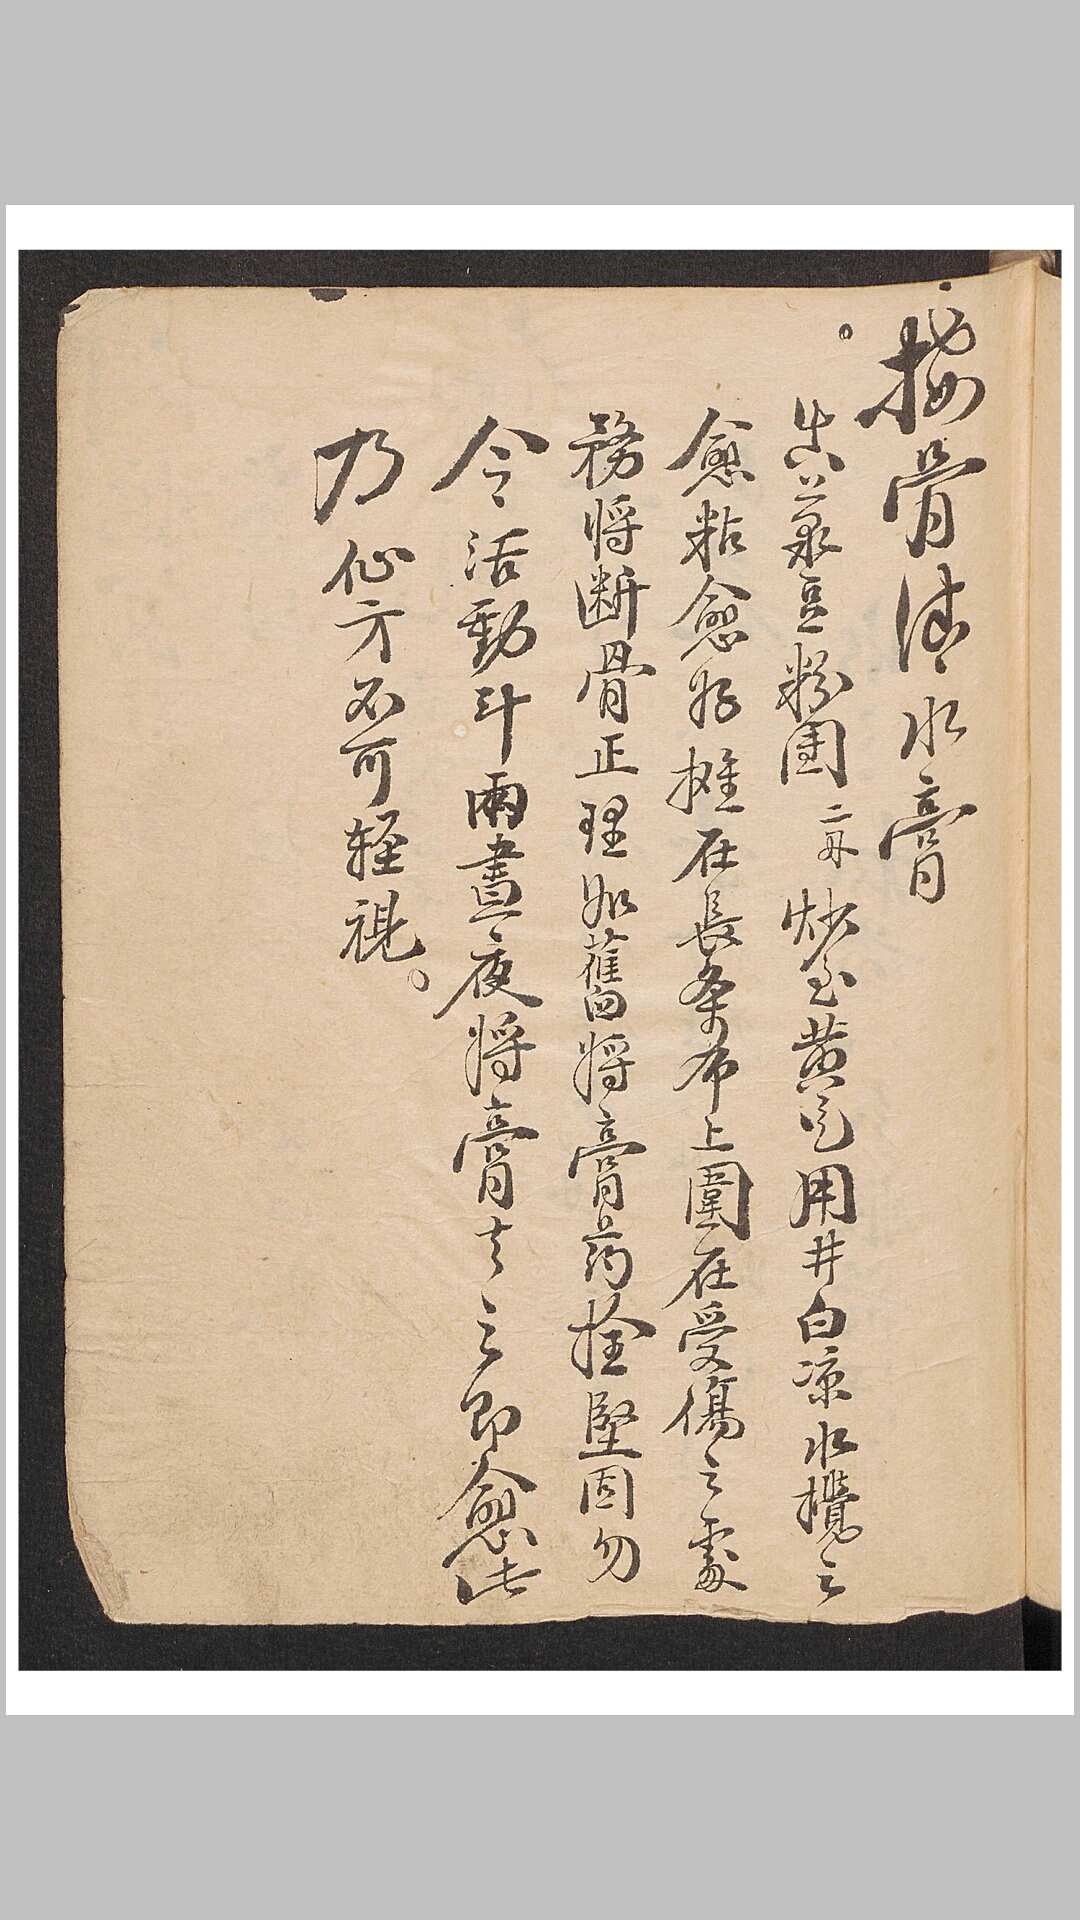 接骨清水膏
真菉豆粉團二両炒至黄色用井白凉水攪之
愈粘愈好攤在長条布上圍在受傷之處
務將断骨正理如舊將膏药拴堅固勿
令活動斗兩晝夜將膏去之即愈此
乃仙方不可轻視